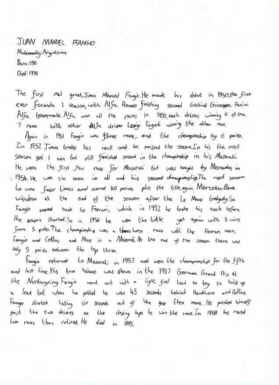 JUAN MANUEL FANGIO
Nationality: Argentinian
Born: 1911
Died: 1995
The first real great, Juan Manuel Fangio. He made his debut in 1950, the first
ever formula 1 season, with Alfa Romeo finishing second behind Giuseppe Farina
Alfa teammate. Alfa won all the races in 1950, each driver winning 3 of the
7 races with other Alfa driver Luigi Fagioli winning the other one.
Again in 1951 Fangio won three races, and the championship by 6 points.
In 1952 Juan broke his neck and he missed the season. In his the next
season got 1 win but still finished second in the championship in his Maserati.
He won the first two races for Maserati but was bought by Mercedes in
1954. He won six races in all and his second championship. The next season
he won four times and scored 40 points plus the title, again. Mercedes Benz
withdrew at the end of the season after the Le Mans tragedy. So
Fangio moved back to Ferrari, which in 1952 he broke his neck before
the season started. So in 1956 he won the title yet again with 3 wins
from 3 poles. The championship was a three horse race with the German man,
Fangio and Collins and Moss in a Maserati. At the end of the season there was
only 5 points between the top three.
Fangio returned to Maserati in 1957 and won the championship for the fifth
and last time. His true talent was shown in the 1957 German Grand Prix at
the Nurburgring. Fangio went out with a light fuel load to try to build up
a lead but when he pitted he was 45 seconds behind Hawthorn and Collins.
Fangio started taking six seconds out of the gap every race. He pushed himself
past the two drivers on the closing laps to win the race. In 1958 he raced
two races then retired. He died in 1995.